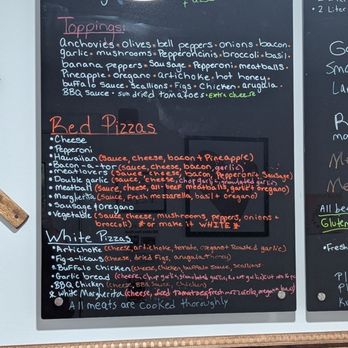 Toppings:
Anchovies • olives • bell peppers • onions • bacon •
garlic • mushrooms • Pepperoncinis • broccoli • basil •
banana peppers • Sausage • Pepperoni • meatballs •
Pineapple • oregano • artichoke • hot honey •
buffalo Sauce • Scallions • Figs • Chicken • arugula •
BBQ Sauce • sun dried tomatoes • Extra cheese
Red Pizzas
• Cheese
• Pepperoni
• Hawaiian (Sauce, cheese, bacon + Pineapple)
• Bacon-a-tor (sauce, cheese, bacon, garlic)
• meatlovers (Sauce, cheese, bacon, Pepperoni, Sausage)
• Double garlic (Sauce, cheese, chop garlic + granulated garlic)
• meatball (Sauce, cheese, all-beef meatballs, garlic + oregano)
• Margherita (Sauce, fresh mozzarella, basil + oregano)
• Sausage + Oregano
• Vegetable (Sauce, cheese, mushrooms, peppers, onions +
broccoli) * or make it WHITE *
White Pizzas
• Artichoke (cheese, artichoke, tomato, oregano + Roasted garlic)
• Fig-a-licous (cheese, dried Figs, arugula,
• Buffalo Chicken (cheese, chicken, buffalo Sauce, scallions
• Garlic bread (cheese, chop garlic, granulated garlic,
• BBQ Chicken (cheese, BBQ Sauce, Chicken)
• White Margherita (cheese, sliced Tomatoes, fresh mozzarella, oregano, basil)
All meats are Cooked thoroughly
2 Liter
Sma
La
All bee
Gluten
• Fresh